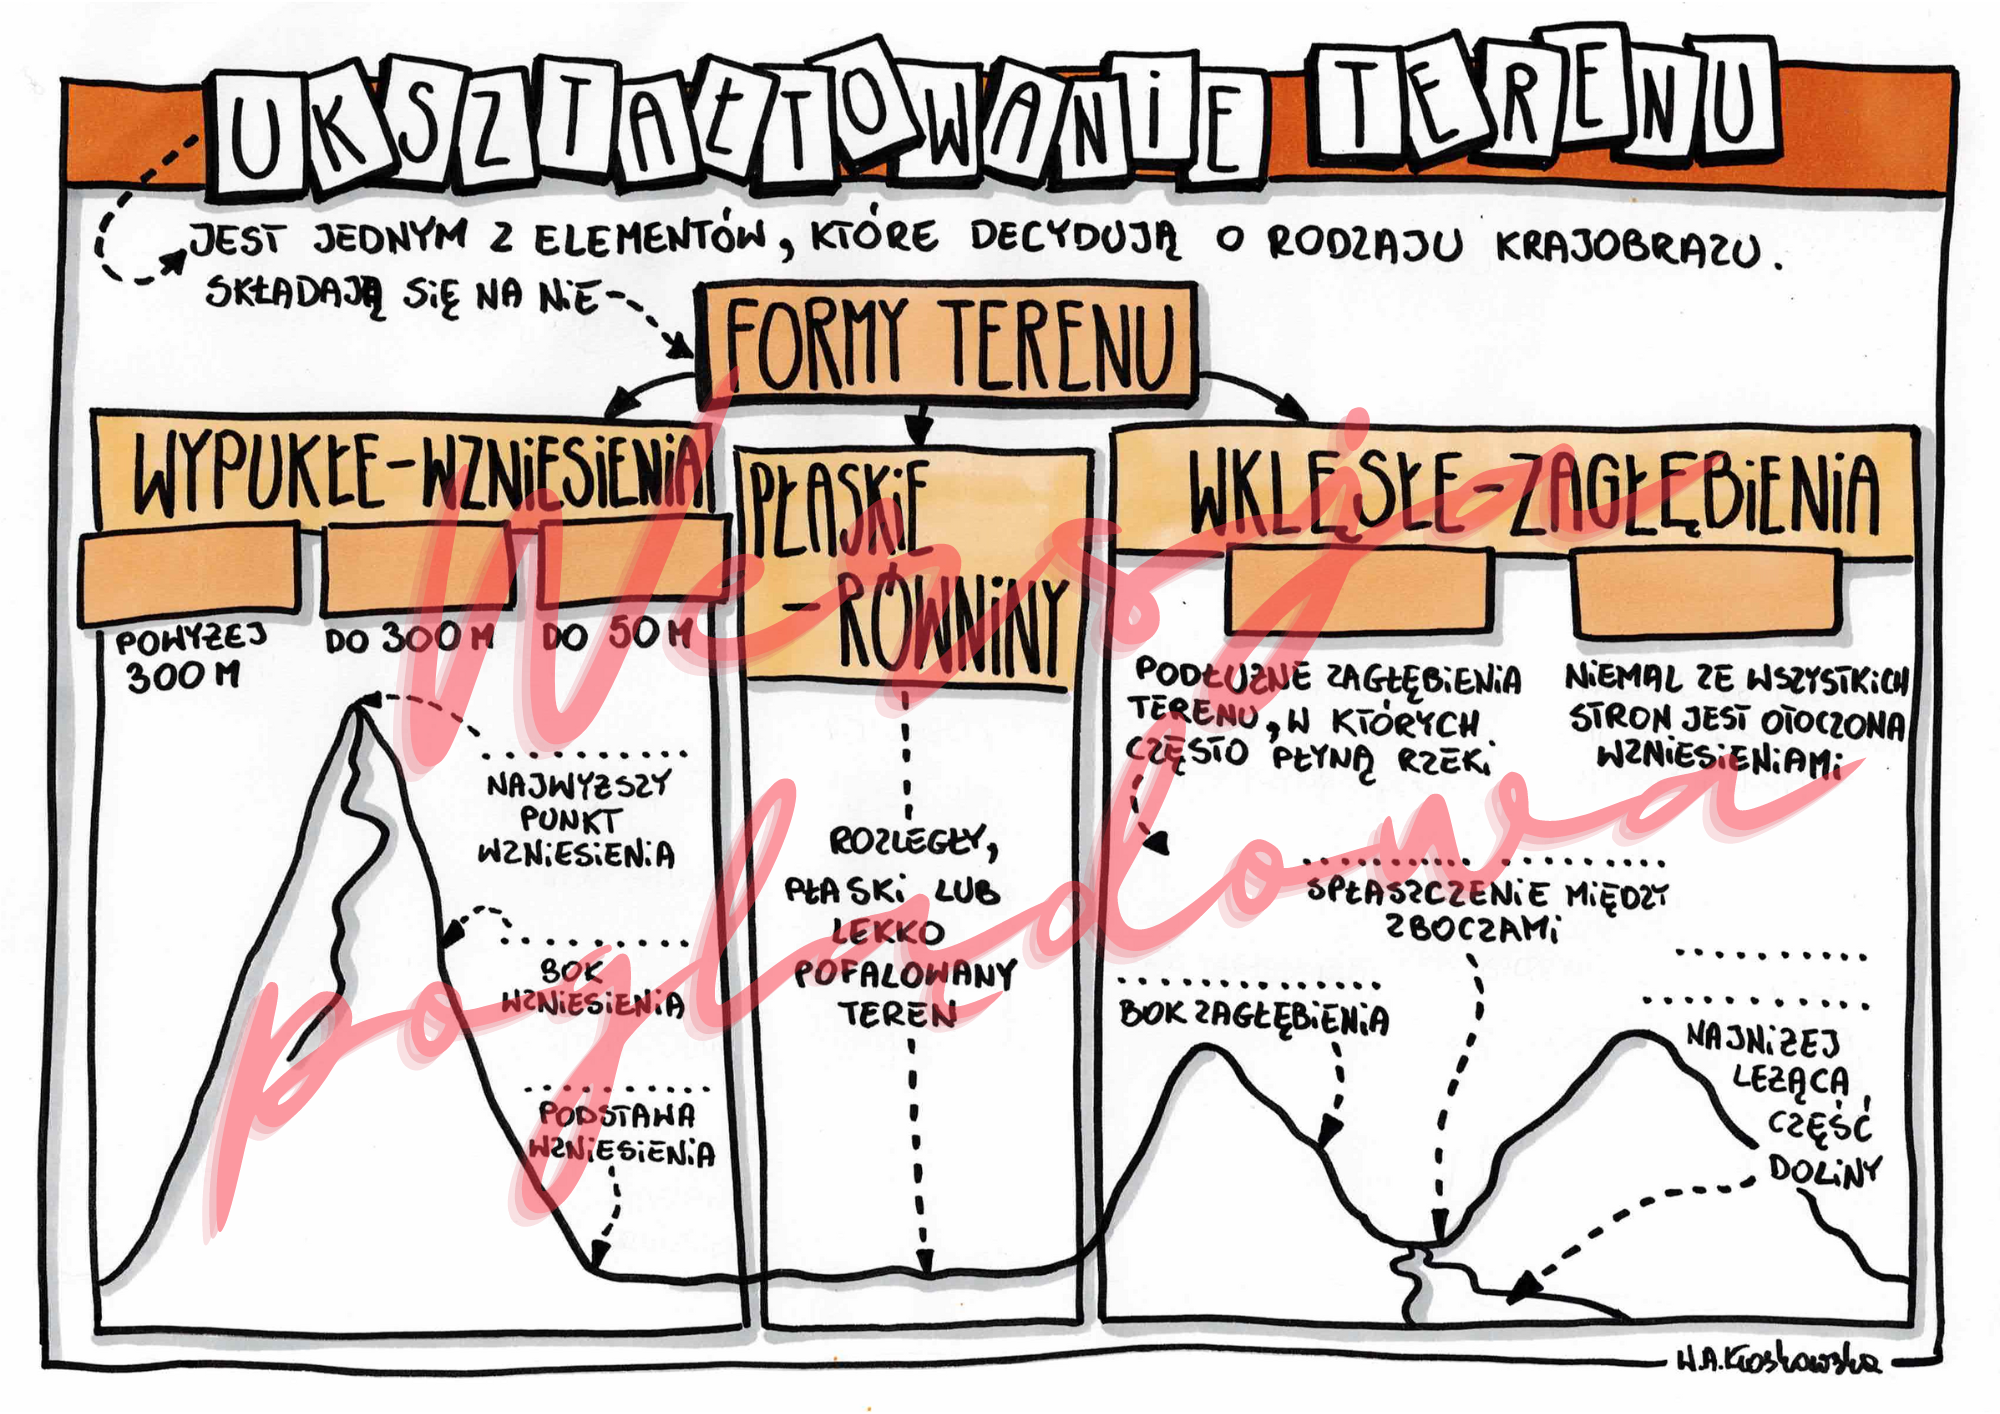 UKSZTAŁTOWANIE TERENU
JEST JEDNYM Z ELEMENTÓW, KTÓRE DECYDUJĄ O RODZAJU KRAJOBRAZU.
SKŁADAJĄ SIĘ NA NIE
FORMY TERENU
WYPUKŁE-WZNIESIENIA
POWYŻEJ
300 M
DO 300 M
DO 50 M
NAJWYŻSZY
PUNKT
WZNIESIENIA
BOK
WZNIESIENIA
PODSTAWA
WZNIESIENIA
PŁASKIE
-RÓWNINY
ROZLEGŁY,
PŁASKI LUB
LEKKO
POFALOWANY
TEREN
WKLĘSŁE-ZAGŁĘBIENIA
PODŁUŻNE ZAGŁĘBIENIA
TERENU, W KTÓRYCH
CZĘSTO PŁYNĄ RZEKI
NIEMAL ZE WSZYSTKICH
STRON JEST OTOCZONA
WZNIESIENIAMI
SPŁASZCZENIE MIĘDZY
ZBOCZAMI
BOK ZAGŁĘBIENIA
NAJNIŻEJ
LEŻĄCA
CZĘŚĆ
DOLINY
Wersja
poglądowa
W.A.Kroskowska